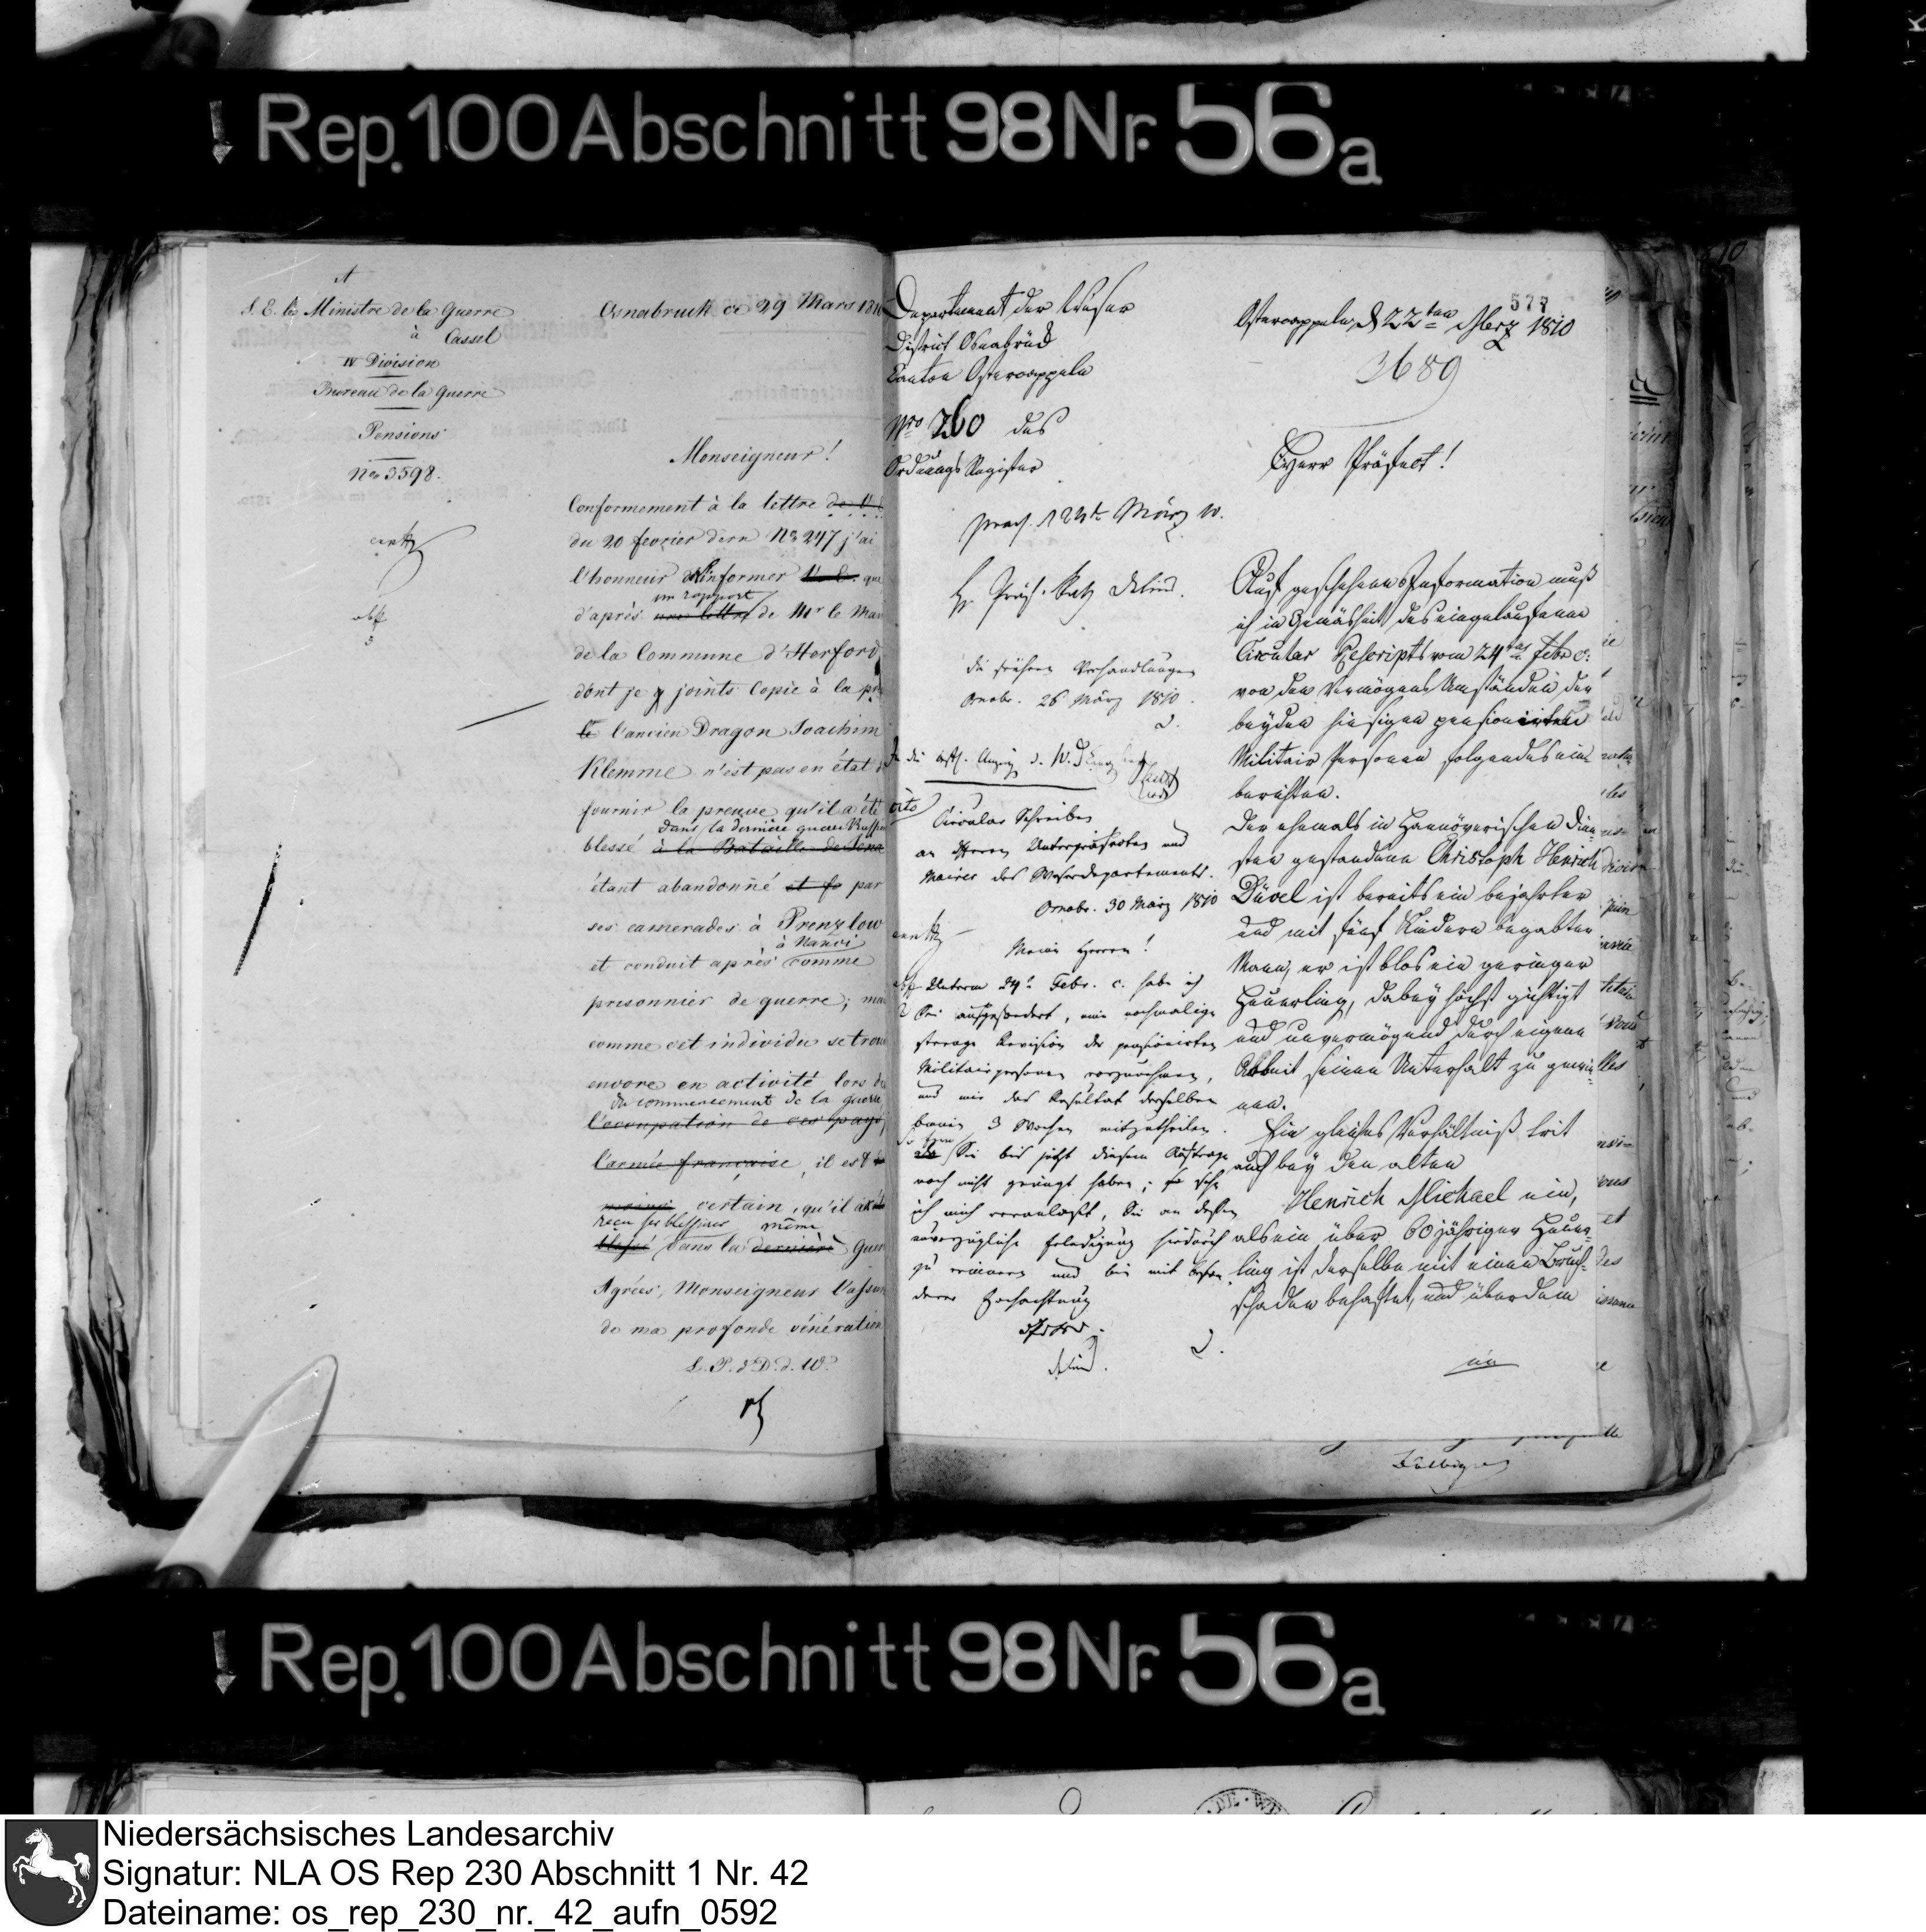 Rep. 100 Abschnitt 98 Nr. 56a
A
S. E. le Ministre de la Guerre
à
Cassel
IV Division
Bureau de la Guerre
Pensions
No 3598.
Osnabruck ce 29 Mars 1810
Monseigneur!
Conformement à la lettre de V.
du 20 fevrier dern No 247 j'ai
l'honneur d'informer V. E. que
un rapport
d'après une lettre de Mr le Mai
de la Commune d'Herford
dont je joints Copie à la pr
l'ancien Dragon Joachim
Klemme n'est pas en état d
fournir la preuve qu'il a été
dans la dernière guerre
blessé à la Bataille de Jena
étant abandonné et fe par
ses camerades à Prenzlow
à Nanci
et conduit après comme
prisonnier de guerre; ma
comme cet individu se trou
encore en activité lors d
du commencement de la guerre
l'occupation de ces pays
l'armée française, il est
certain, qu'il a
reçu ses blessures même
blessé dans la dernière guer
Agréés, Monseigneur l'assur
de ma profonde vénération
L. P. d. D. d. W.
Departement der Weser
District Osnabrück
Canton Ostercappeln
Nro 260 des
Ordnungs Register
praes. 24t März 10.
H. Präf. Rath Delius.
die frühern Verhandlungen
Osnabr. 26 März 1810.
D.
Circular Schreiben
an Herren Unterpräfecten und
Maires des Weserdepartements.
Osnabr. 30 März 1810
Meine Herren!
Unterm 24t Febr. c. habe ich
Sie aufgefordert, eine nochmalige
strenge Revision der pensionirten
Militairpersonen vorzunehmen,
und mir das Resultat derselben
binnen 3 Wochen mitzutheilen.
Sie bis jetzt diesem Auftrage
noch nicht genügt haben; so sehe
ich mich veranlaßt, Sie an dessen
unverzügliche Erledigung hierdurch
zu erinnern und bin mit beson
derer Hochachtung
D.
577
Ostercappeln, d 22ten Merz 1810
3689
Herr Präfect!
Auf geschehene Information muß
ich in Gemäsheit des eingelaufenen
Circular Rescripts vom 24ten Febr c:
von den Vermögens Umständen der
beyden hiesigen pensionirten
Militair Personen folgendes ein
berichten.
Der ehemals in Hannöverischen Dien-
sten gestandene Christoph Henrich
Düvel ist bereits ein bejahrter
und mit fünf Kindern begabter
Mann, er ist blos ein geringer
Heuerling, dabey höchst gichtigt
und unvermögend durch eigene
Arbeit seinen Unterhalt zu gewin-
nen.
Ein gleiches Verhältniß trit
auch bey den alten
Henrich Michael ein,
als ein über 60 jähriger Heuer-
ling ist derselbe mit einen Bruch-
schaden behaftet, und überdem
Rep. 100 Abschnitt 98 Nr. 56a
Niedersächsisches Landesarchiv
Signatur: NLA OS Rep 230 Abschnitt 1 Nr. 42
Dateiname: os_rep_230_nr._42_aufn_0592